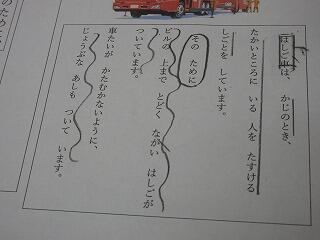 はしご車は、かじのとき、
たかいところに いる 人を たすける
しごとを しています。
その ために
ビルの 上まで とどく ながい はしごが
ついています。
車たいが かたむかないように、
じょうぶな あしも ついて います。
のために